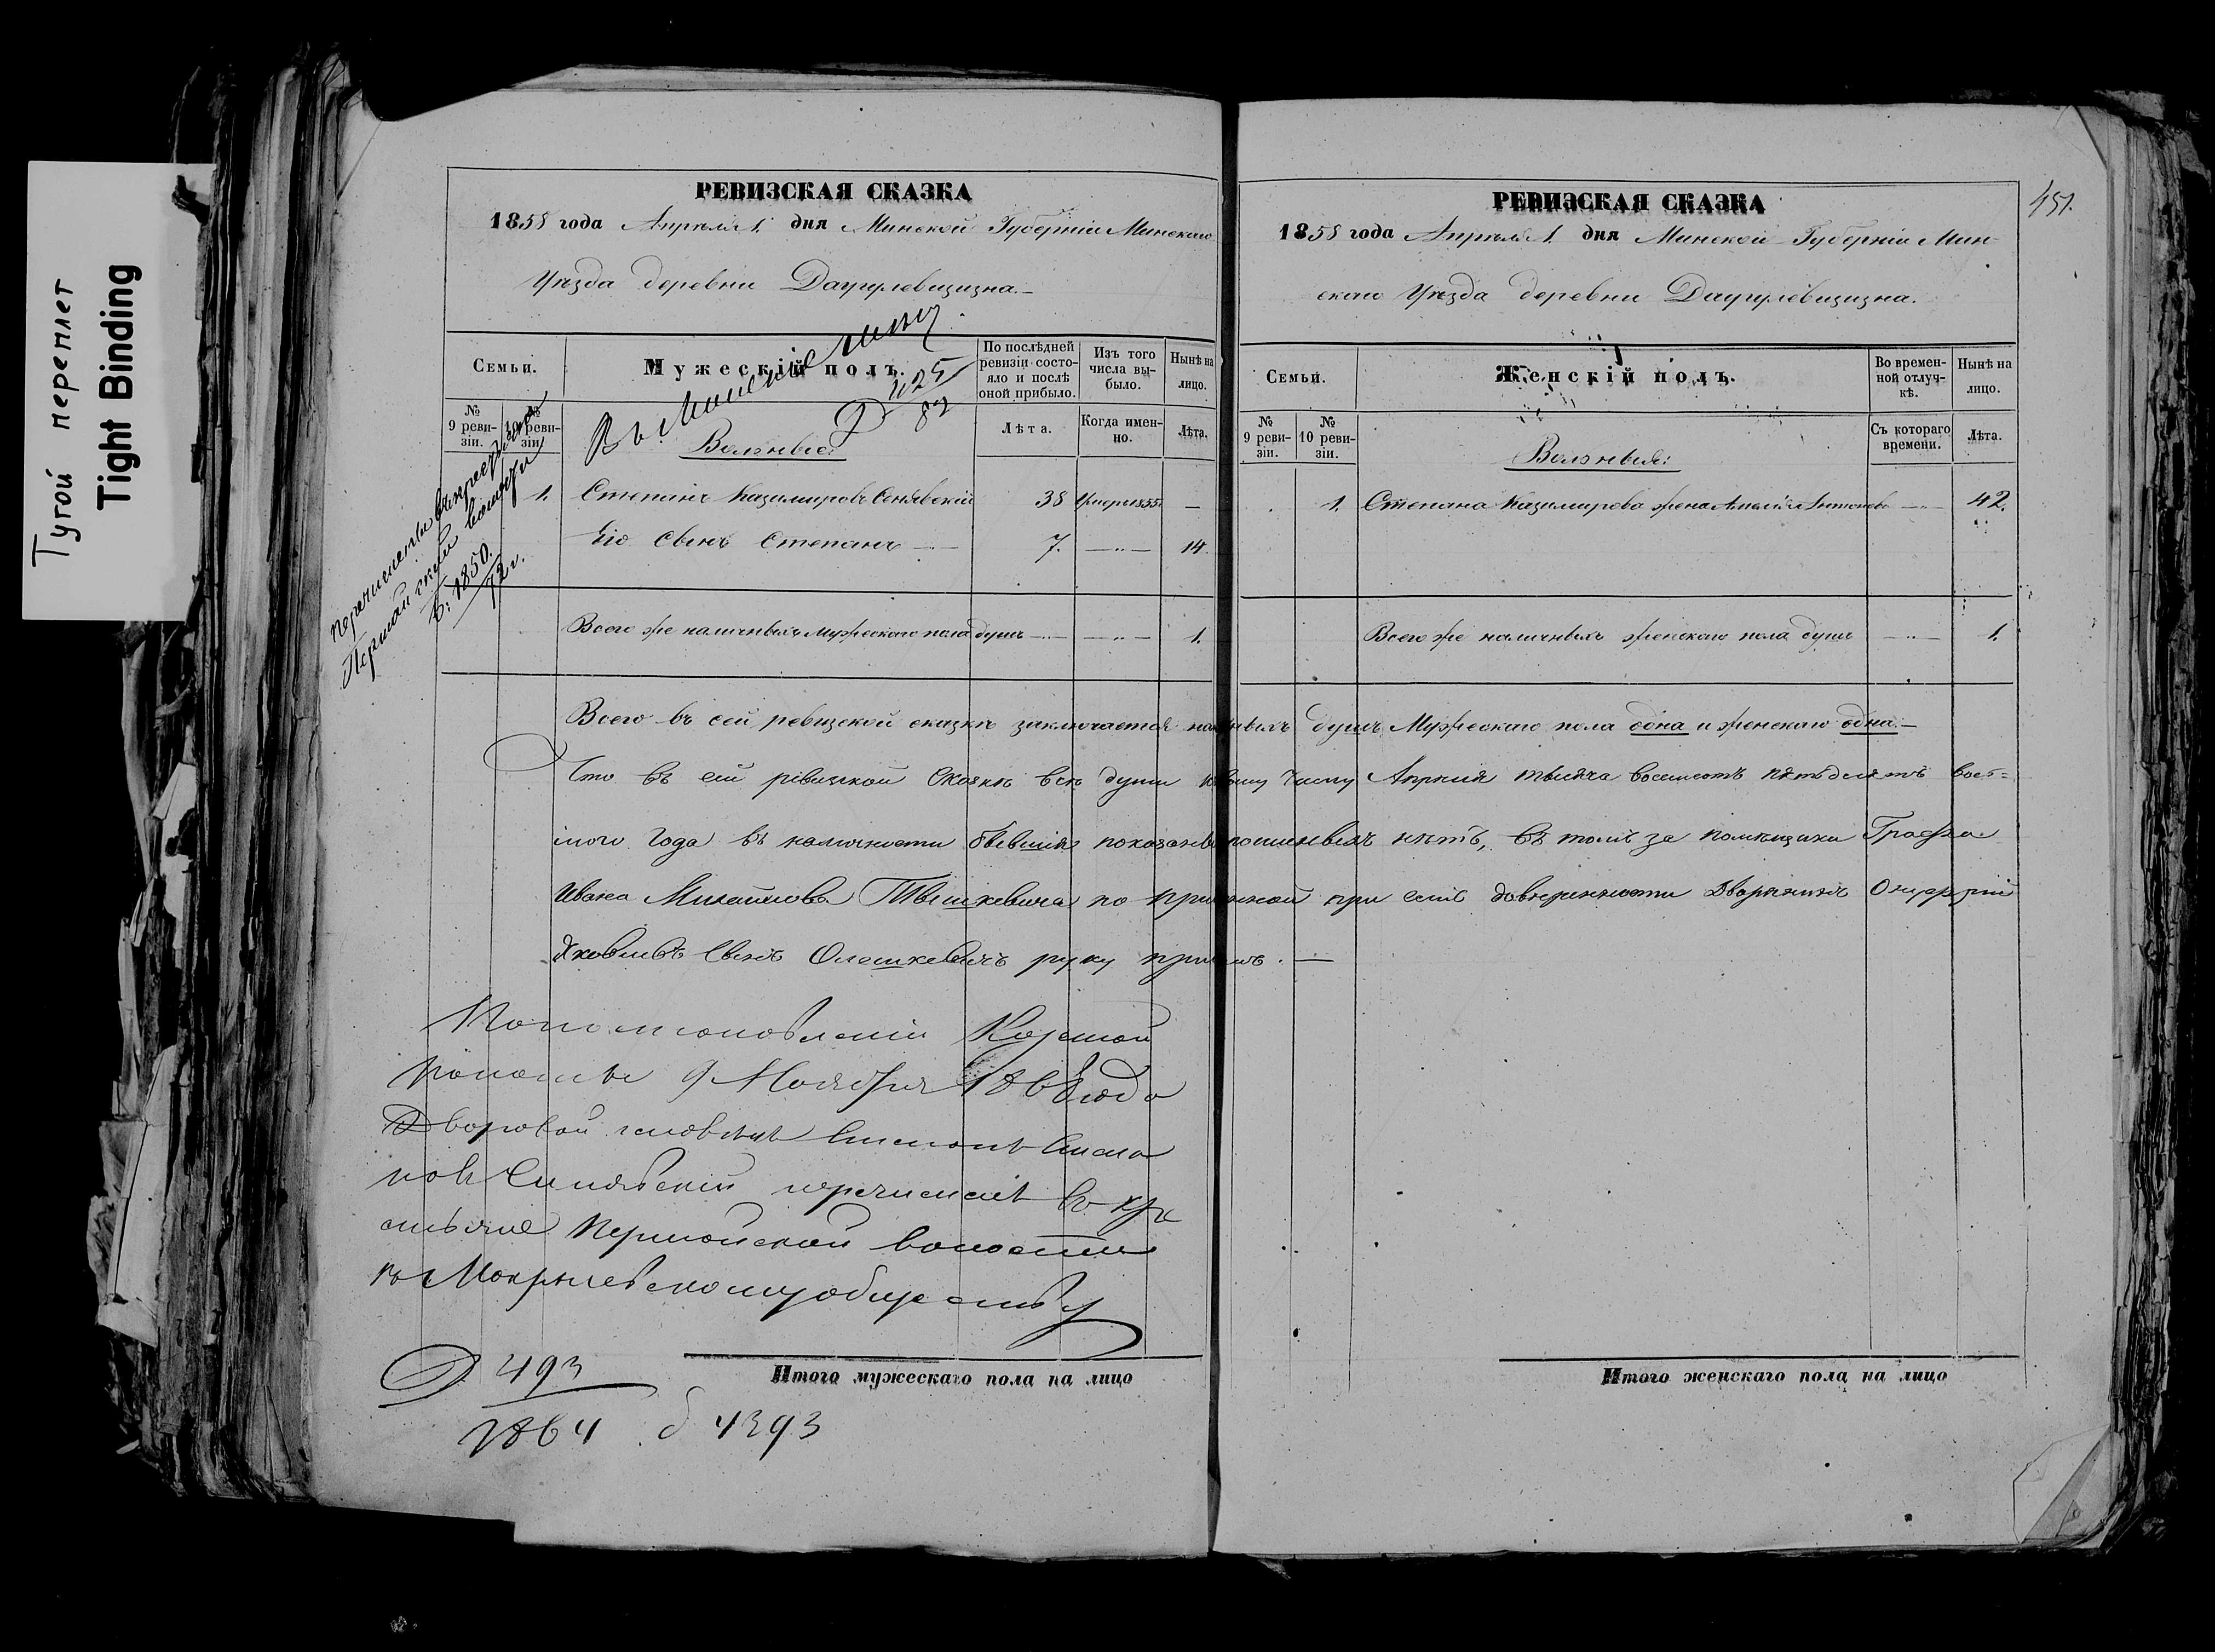 Тугой переплет
Tight Binding
РЕВИЗСКАЯ СКАЗКА
1858 года Апрѣля 1. дня Минской Губерніи Минскаго
Уѣзда деревни Даугулевщизна.—
Семьи.
Мужескій полъ.
По послѣдней ревизіи состояло и послѣ оной прибыло.
Изъ того числа выбыло.
Нынѣ на лицо.
№ 9 ревизіи.
№ 10 ревизіи.
Лѣта.
Когда именно.
Лѣта.
Въ Минскіе
425
82
Вольные:
1. Степанъ Казимировъ Сенявскій 38 Умеръ 1855. —
Его сынъ Степанъ — 7. —„— 14.
Всего же наличныхъ мужескаго пола душъ — —„— 1.
перечислены
волости
1850.
72 г.
РЕВИЗСКАЯ СКАЗКА
451.
1858 года Апрѣля 1. дня Минской Губерніи Мин-
скаго Уѣзда деревни Даугулевщизна.
Семьи.
Женскій полъ.
Во временной отлучкѣ.
Нынѣ на лицо.
№ 9 ревизіи.
№ 10 ревизіи.
Съ котораго времени.
Лѣта.
Вольныя:
1. Степана Казимирова жена Амалія Антонова — 42.
Всего же наличныхъ женскаго пола душъ —„— 1.
Всего въ сей ревизской сказкѣ заключается наличныхъ душъ Мужескаго пола одна и женскаго одна.—
Что въ сей ревизской сказкѣ всѣ души къ 1му числу Апрѣля тысяча восемсотъ пятьдесятъ вось=
мого года въ наличности бывшія показаны и нѣтъ, въ томъ за помѣщика Графа
Ивана Михайлова Тышкевича по при семъ довѣренности Дворянинъ Онуфрій
Яковлевъ сынъ Олешкевичъ руку приложилъ. —
По постановленію Казенной
палаты 9 Ноября 186 года
Дворовой человѣкъ Степанъ Степа
новъ Синявскій перечисленъ въ кре
стьяне волости
къ Мокрылевскому обществу
Д. 493
1864 б 4393
Итого мужескаго пола на лицо
Итого женскаго пола на лицо